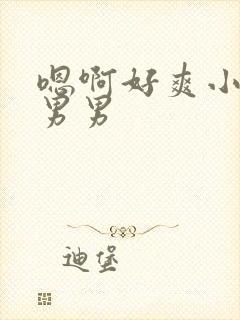 嗯啊好爽小
男男
迪堡